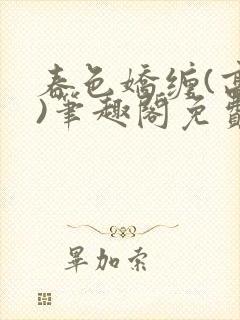 春色嬌纏(高
)筆趣閣免費
畢加索